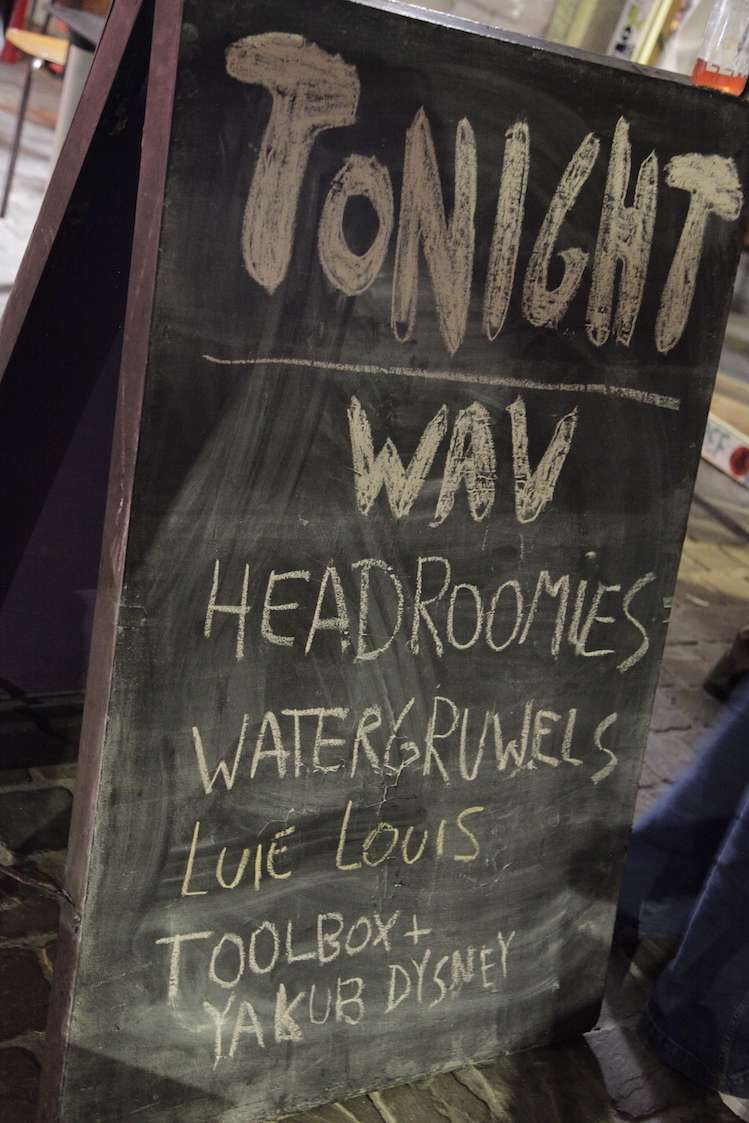 TONIGHT
WAV
HEADROOMIES
WATERGRUWELS
LUIE LOUIS
TOOLBOX+
YAKUB DYSNEY